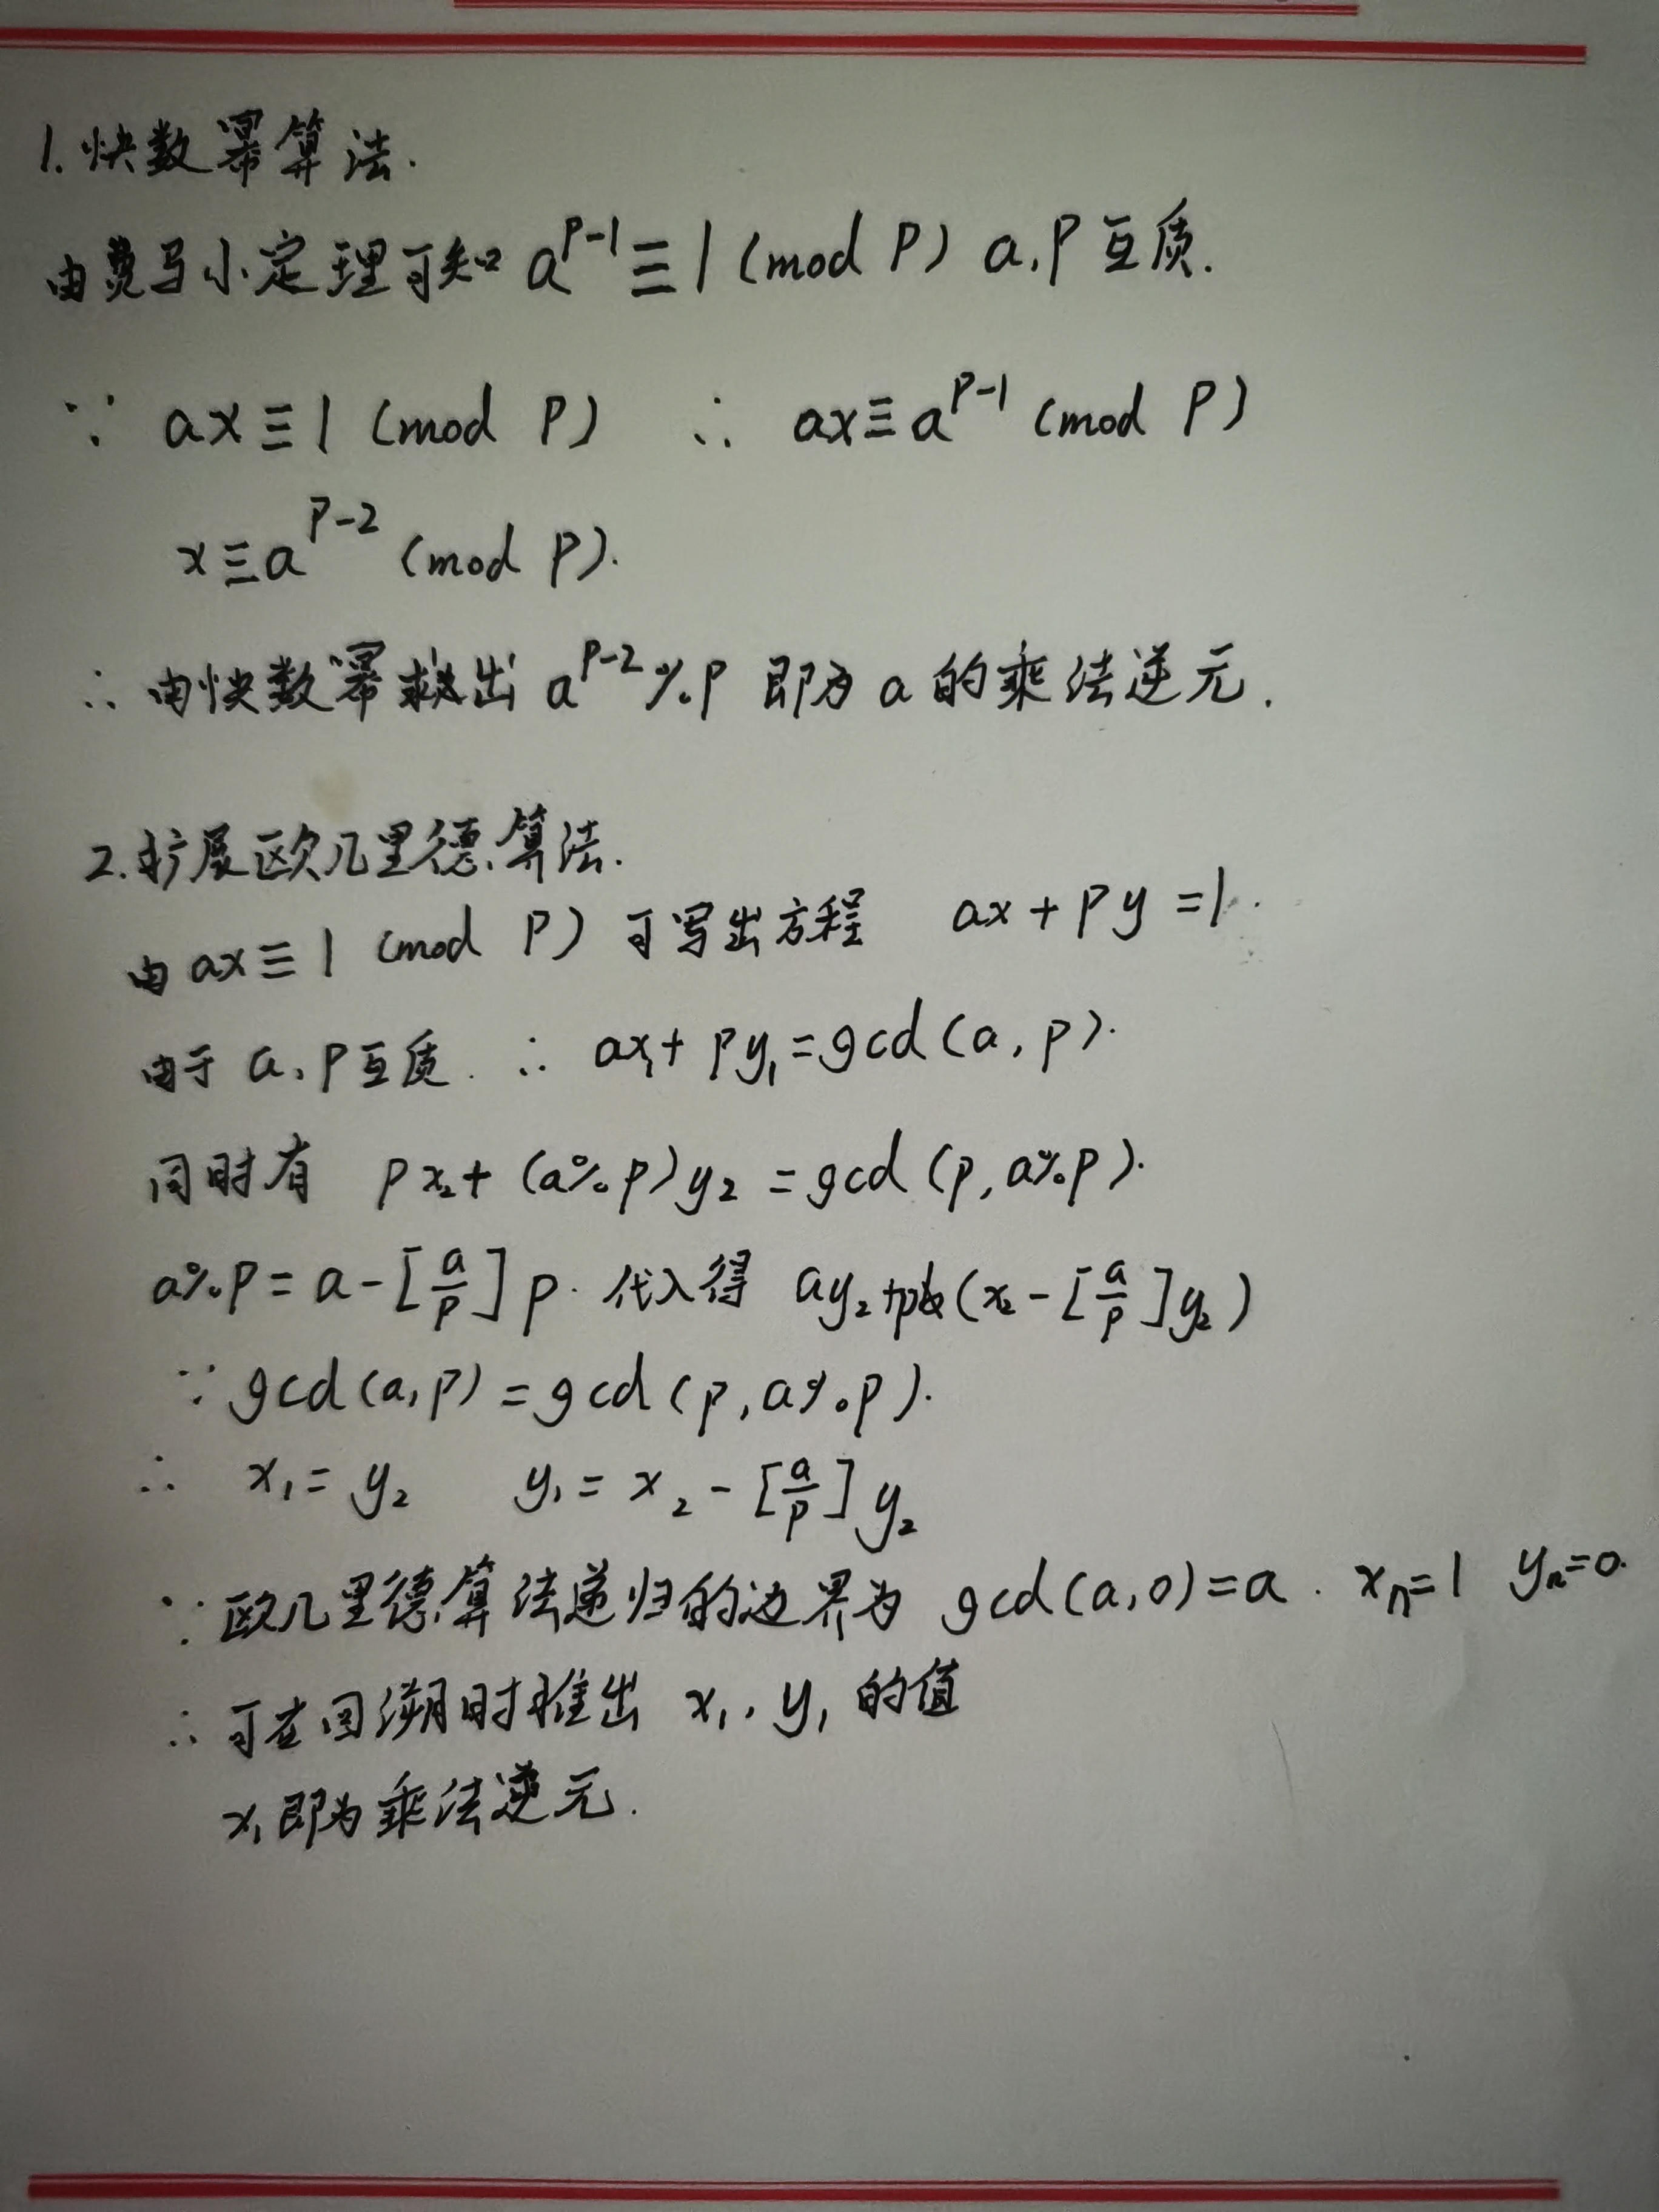 1.快数幂算法.
由费马小定理可知 a^{p-1}≡1 (mod P) a,P互质.
∵ ax≡1 (mod P) ∴ ax≡a^{p-1} (mod P)
x≡a^{p-2} (mod P).
∴由快数幂求出 a^{p-2}%p 即为a的乘法逆元.
2.扩展欧几里德算法.
由ax≡1 (mod P) 可写出方程 ax+py=1.
由于a,P互质. ∴ ax₁+py₁=gcd(a,p).
同时有 px₂+(a%p)y₂=gcd(p,a%p).
a%p=a-[a/p]p. 代入得 ay₂+p(x₂-[a/p]y₂)
∵gcd(a,p)=gcd(p,a%p).
∴ x₁=y₂ y₁=x₂-[a/p]y₂
∵欧几里德算法递归的边界为 gcd(a,0)=a. xₙ=1 yₙ=0.
∴可在回溯时推出 x₁,y₁的值
x₁即为乘法逆元.